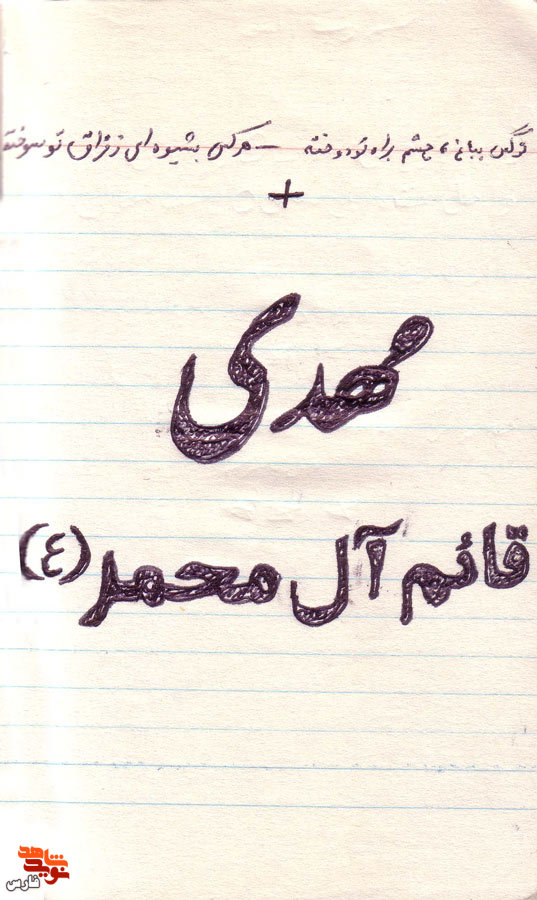 نرگس بباغ، چشم براه تو دوخته – هر کس بشیوه ای ز فراق تو سوخته
+
مهدی
قائم آل محمد (ع)
نوید شاهد
فارس